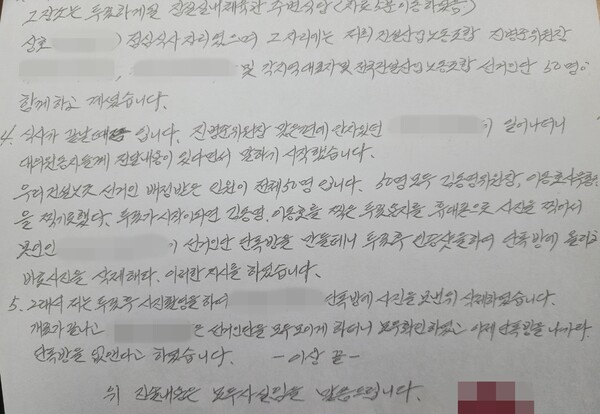 그 장소는 투표하게될 잠실실내체육관 주변식당 (차로 5분 이동하였음)
상호 ) 점심식사 자리였으며 그 자리에는 저희 건설산업노동조합 진병준위원장
, 및 각지역대표자 및 전국건설산업노동조합 선거인단 50명이
함께하고 계셨습니다.
4. 식사가 끝날때쯤 입니다. 진병준위원장 맞은편에 앉자있던 이 일어나더니
대의원동지들께 전달내용이 있다면서 말하기 시작했습니다.
우리 건설노조 선거인 배정받은 인원이 전체50명 입니다. 50명 모두 김동명위원장, 이동호사무총장
을 찍기로했다. 투표가 시작이되면 김동명, 이동호를 찍은 투표용지를 휴대폰으로 사진을 찍어서
본인인 가 선거인단 단톡방을 만들테니 투표후 인증샷을하여 단톡방에 올리고
바로사진을 삭제해라. 이러한 지시를 하였습니다.
5. 그래서 저는 투표후 사진촬영을 하여 단톡방에 사진을 보낸뒤 삭제하였습니다.
개표가 끝나고 은 선거인단을 모두모이게 하더니 모두확인하였고 이제 단톡방을 나가라.
단톡방을 없앤다고 하였습니다. -이상 끝-
위 진술내용은 모두사실임을 말씀드립니다.